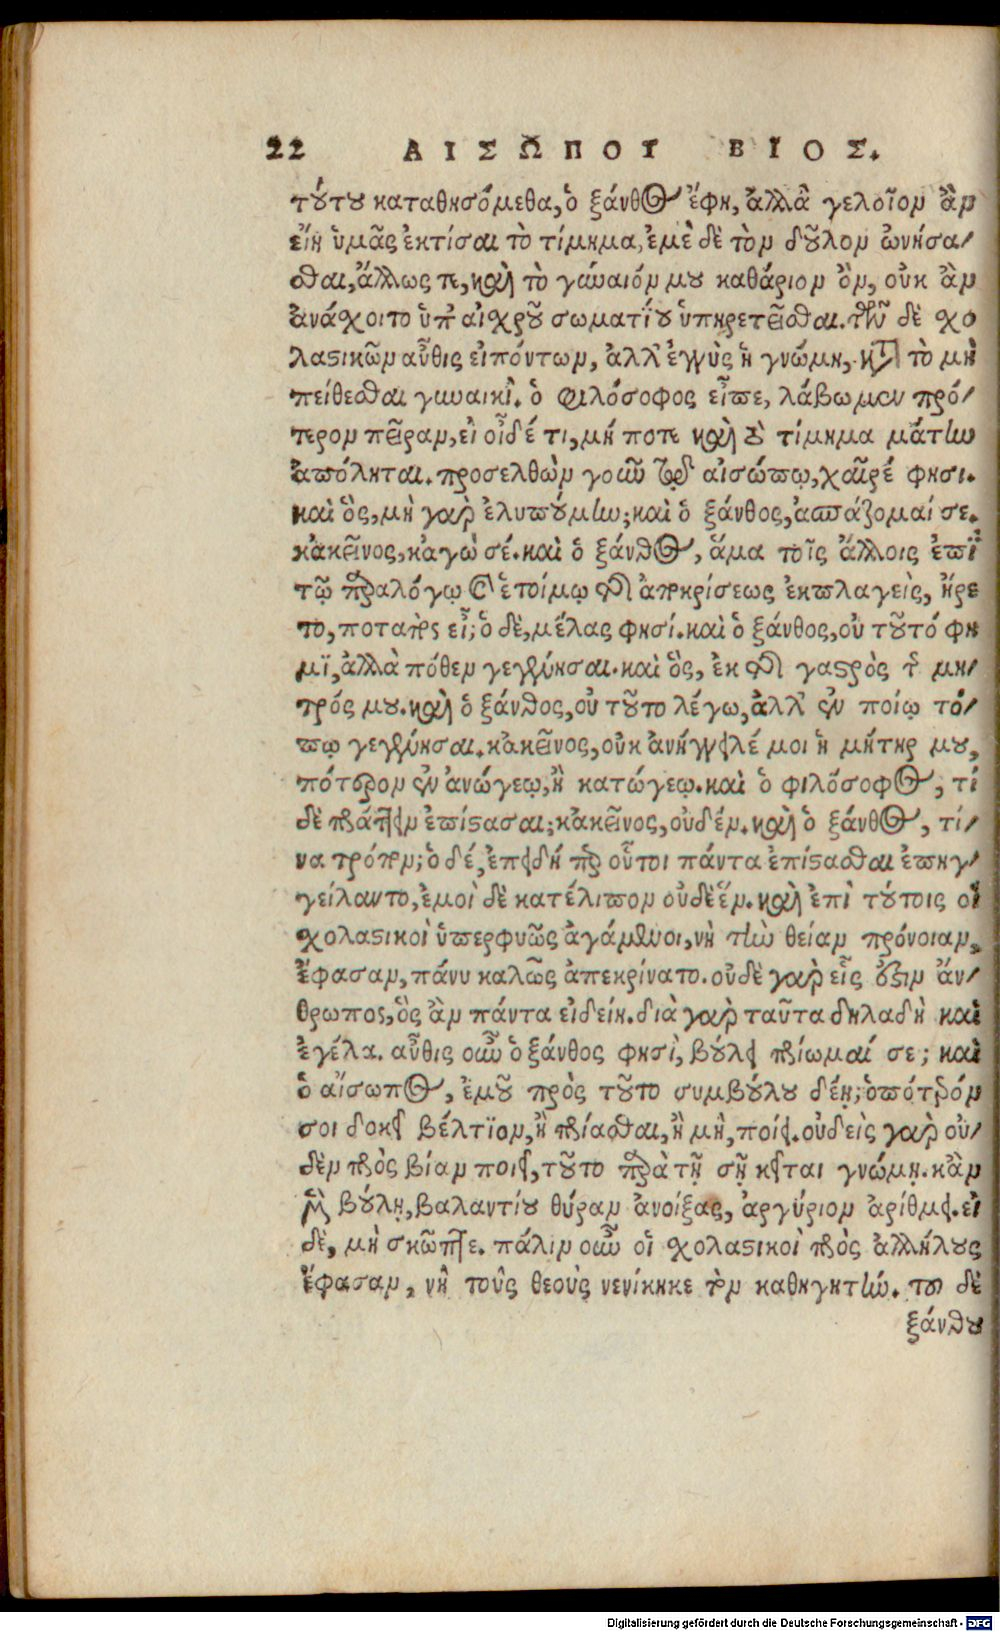 22 ΑΙΣΩΠΟΥ ΒΙΟΣ.
τούτου καταθησόμεθα, ὁ ξάνθος ἔφη, ἀλλὰ γελοῖον ἂν
εἴη ὑμᾶς ἐκτίσαι τὸ τίμημα, ἐμὲ δὲ τὸν δοῦλον ὠνήσα/
σθαι, ἄλλως τε, καὶ τὸ γύναιόν μου καθάριον ὂν, οὐκ ἂν
ἀνάχοιτο ὑπ' αἰχροῦ σωματίου ὑπηρετεῖσθαι. τῶν δὲ χο
λαστικῶν αὖθις εἰπόντων, ἀλλ' ἐγγὺς ἡ γνώμη, κατὰ τὸ μὴ
πείθεσθαι γυναικί. ὁ φιλόσοφος εἶπε, λάβωμεν πρό/
τερον πεῖραν, εἰ οἶδέ τι, μή ποτε καὶ τὸ τίμημα μάτην
ἀπόληται. προσελθὼν γοῦν τῷ αἰσώπῳ, χαῖρέ φησι.
καὶ ὃς, μὴ γὰρ ἐλυπούμην; καὶ ὁ ξάνθος, ἀσπάζομαί σε.
κἀκεῖνος, κᾀγὼ σέ. καὶ ὁ ξάνθος, ἅμα τοῖς ἄλλοις ἐπὶ
τῷ παραλόγῳ καὶ ἑτοίμῳ τῆς ἀποκρίσεως ἐκπλαγεὶς, ἤρε
το, ποταπὸς εἶ; ὁ δὲ, μέλας φησί. καὶ ὁ ξάνθος, οὐ τοῦτό φη
μϊ, ἀλλὰ πόθεν γεγέννησαι. καὶ ὃς, ἐκ τῆς γαστρὸς τῆς μη/
τρός μου. καὶ ὁ ξάνθος, οὐ τοῦτο λέγω, ἀλλ' ἐν ποίῳ τό/
πῳ γεγέννησαι. κἀκεῖνος, οὐκ ἀνήγγειλέ μοι ἡ μήτηρ μου,
πότερον ἐν ἀνώγεῳ, ἢ κατώγεῳ. καὶ ὁ φιλόσοφος, τί
δὲ πράττειν ἐπίστασαι; κἀκεῖνος, οὐδέν. καὶ ὁ ξάνθος, τί/
να τρόπον; ὁ δέ, ἐπειδή περ οὗτοι πάντα ἐπίστασθαι ἐπηγ/
γείλαντο, ἐμοὶ δὲ κατέλιπον οὐδὲἕν. καὶ ἐπὶ τούτοις οἱ
χολαστικοὶ ὑπερφυῶς ἀγάμενοι, νὴ τὴν θείαν πρόνοιαν,
ἔφασαν, πάνυ καλῶς ἀπεκρίνατο. οὐδὲ γὰρ εἷς ἔστιν ἄν/
θρωπος, ὃς ἂν πάντα εἰδείη. διὰ γὰρ ταῦτα δηλαδὴ καὶ
ἐγέλα. αὖθις οὖν ὁ ξάνθος φησὶ, βούλει πρίωμαί σε; καὶ
ὁ αἴσωπος, ἐμοῦ πρὸς τοῦτο συμβούλου δέῃ; ὁπότερόν
σοι δοκεῖ βέλτϊον, ἢ πρίασθαι, ἢ μὴ, ποίει. οὐδεὶς γὰρ οὐ/
δὲν πρὸς βίαν ποιεῖ, τοῦτο παρὰ τῇ σῇ κεῖται γνώμῃ. κἂν
μὲν βούλῃ, βαλαντίου θύραν ἀνοίξας, ἀργύριον ἀρίθμει. εἰ
δὲ, μὴ σκῶπτε. πάλιν οὖν οἱ χολαστικοὶ πρὸς ἀλλήλους
ἔφασαν, νὴ τοὺς θεοὺς νενίκηκε τὸν καθηγητήν. τοῦ δὲ
ξάνθου
Digitalisierung gefördert durch die Deutsche Forschungsgemeinschaft - DFG